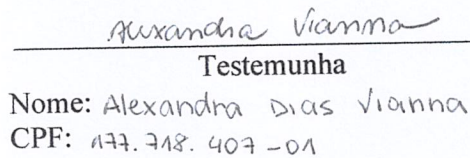 Alexandra Vianna
Testemunha
Nome: Alexandra Dias Vianna
CPF: 177.718.407-01